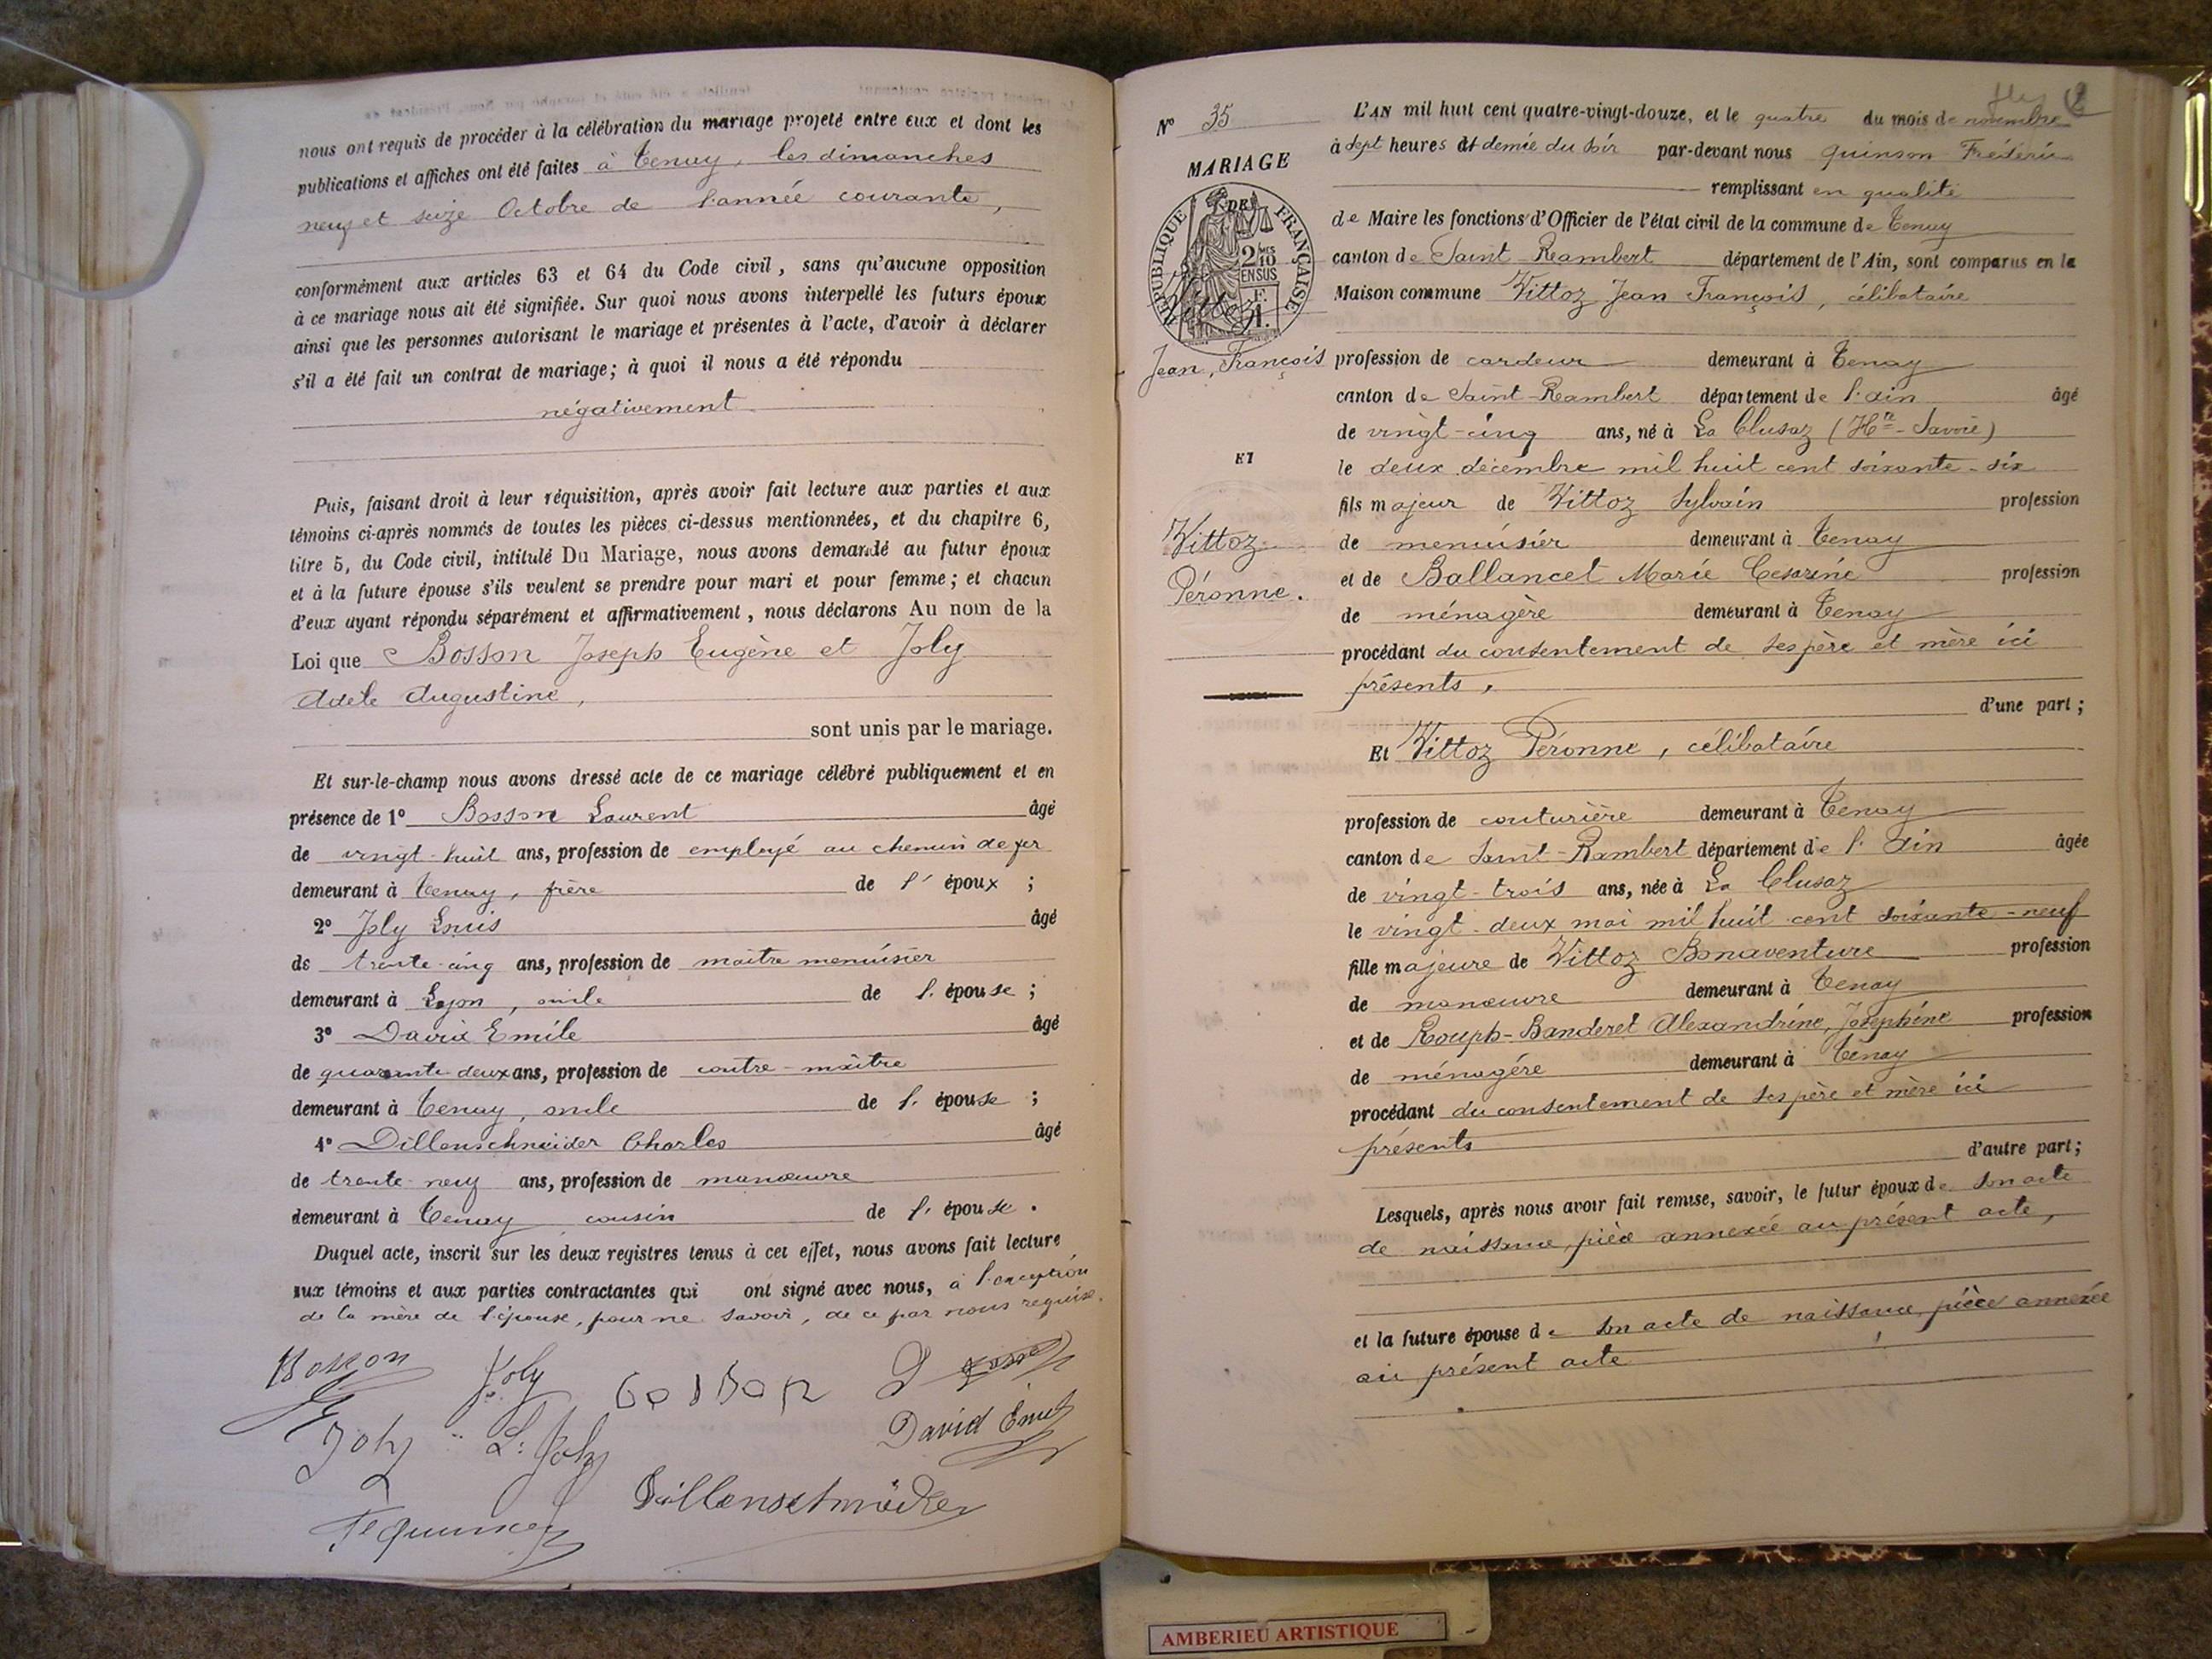 nous ont requis de procéder à la célébration du mariage projeté entre eux et dont les
publications et affiches ont été faites à Tenay, les dimanches
neuf et seize Octobre de l'année courante,
conformément aux articles 63 et 64 du Code civil, sans qu'aucune opposition
à ce mariage nous ait été signifiée. Sur quoi nous avons interpellé les futurs époux
ainsi que les personnes autorisant le mariage et présentes à l'acte, d'avoir à déclarer
s'il a été fait un contrat de mariage; à quoi il nous a été répondu
négativement
Puis, faisant droit à leur réquisition, après avoir fait lecture aux parties et aux
témoins ci-après nommés de toutes les pièces ci-dessus mentionnées, et du chapitre 6,
titre 5, du Code civil, intitulé Du Mariage, nous avons demandé au futur époux
et à la future épouse s'ils veulent se prendre pour mari et pour femme; et chacun
d'eux ayant répondu séparément et affirmativement, nous déclarons Au nom de la
Loi que Bosson Joseph Eugène et Joly
Adèle Augustine,
sont unis par le mariage.
Et sur-le-champ nous avons dressé acte de ce mariage célébré publiquement et en
présence de 1° Bosson Laurent âgé
de vingt-huit ans, profession de employé au chemin de fer
demeurant à Tenay, frère de l'époux ;
2° Joly Louis âgé
de trente-cinq ans, profession de maître menuisier
demeurant à Lyon, oncle de l'épouse ;
3° David Emile âgé
de quarante-deux ans, profession de contre-maître
demeurant à Tenay, oncle de l'épouse ;
4° Dillenschneider Charles âgé
de trente-neuf ans, profession de manœuvre
demeurant à Tenay cousin de l'épouse.
Duquel acte, inscrit sur les deux registres tenus à cet effet, nous avons fait lecture
aux témoins et aux parties contractantes qui ont signé avec nous, à l'exception
de la mère de l'épouse, pour ne savoir, de ce par nous requise.
Bosson Joly Bosson
Joly L. Joly David Emile
Dillenschneider
Fc Quinson
N° 35
MARIAGE
RÉPUBLIQUE FRANÇAISE
2 10 EN SUS
Vittoz
Jean, François
ET
Vittoz
Péronne.
L'AN mil huit cent quatre-vingt-douze, et le quatre du mois de novembre
à sept heures et demie du soir par-devant nous Quinson Frédéric
remplissant en qualité
de Maire les fonctions d'Officier de l'état civil de la commune de Tenay
canton de Saint-Rambert département de l'Ain, sont comparus en la
Maison commune Vittoz Jean François, célibataire
profession de cardeur demeurant à Tenay
canton de Saint-Rambert département de l'ain âgé
de vingt-cinq ans, né à La Clusaz (Hte-Savoie)
le deux décembre mil huit cent soixante-six
fils majeur de Vittoz Sylvain profession
de menuisier demeurant à Tenay
et de Ballancet Marie Cesarine profession
de ménagère demeurant à Tenay
procédant du consentement de ses père et mère ici
présents,
d'une part;
Et Vittoz Péronne, célibataire
profession de couturière demeurant à Tenay
canton de Saint-Rambert département de l'Ain âgée
de vingt-trois ans, née à La Clusaz
le vingt-deux mai mil huit cent soixante-neuf
fille majeure de Vittoz Bonaventure profession
de manœuvre demeurant à Tenay
et de Rouph-Banderet Alexandrine, Josephine profession
de ménagère demeurant à Tenay
procédant du consentement de ses père et mère ici
présents
d'autre part;
Lesquels, après nous avoir fait remise, savoir, le futur époux de son acte
de naissance, pièce annexée au présent acte,
et la future épouse de son acte de naissance, pièce annexée
au présent acte
AMBERIEU ARTISTIQUE